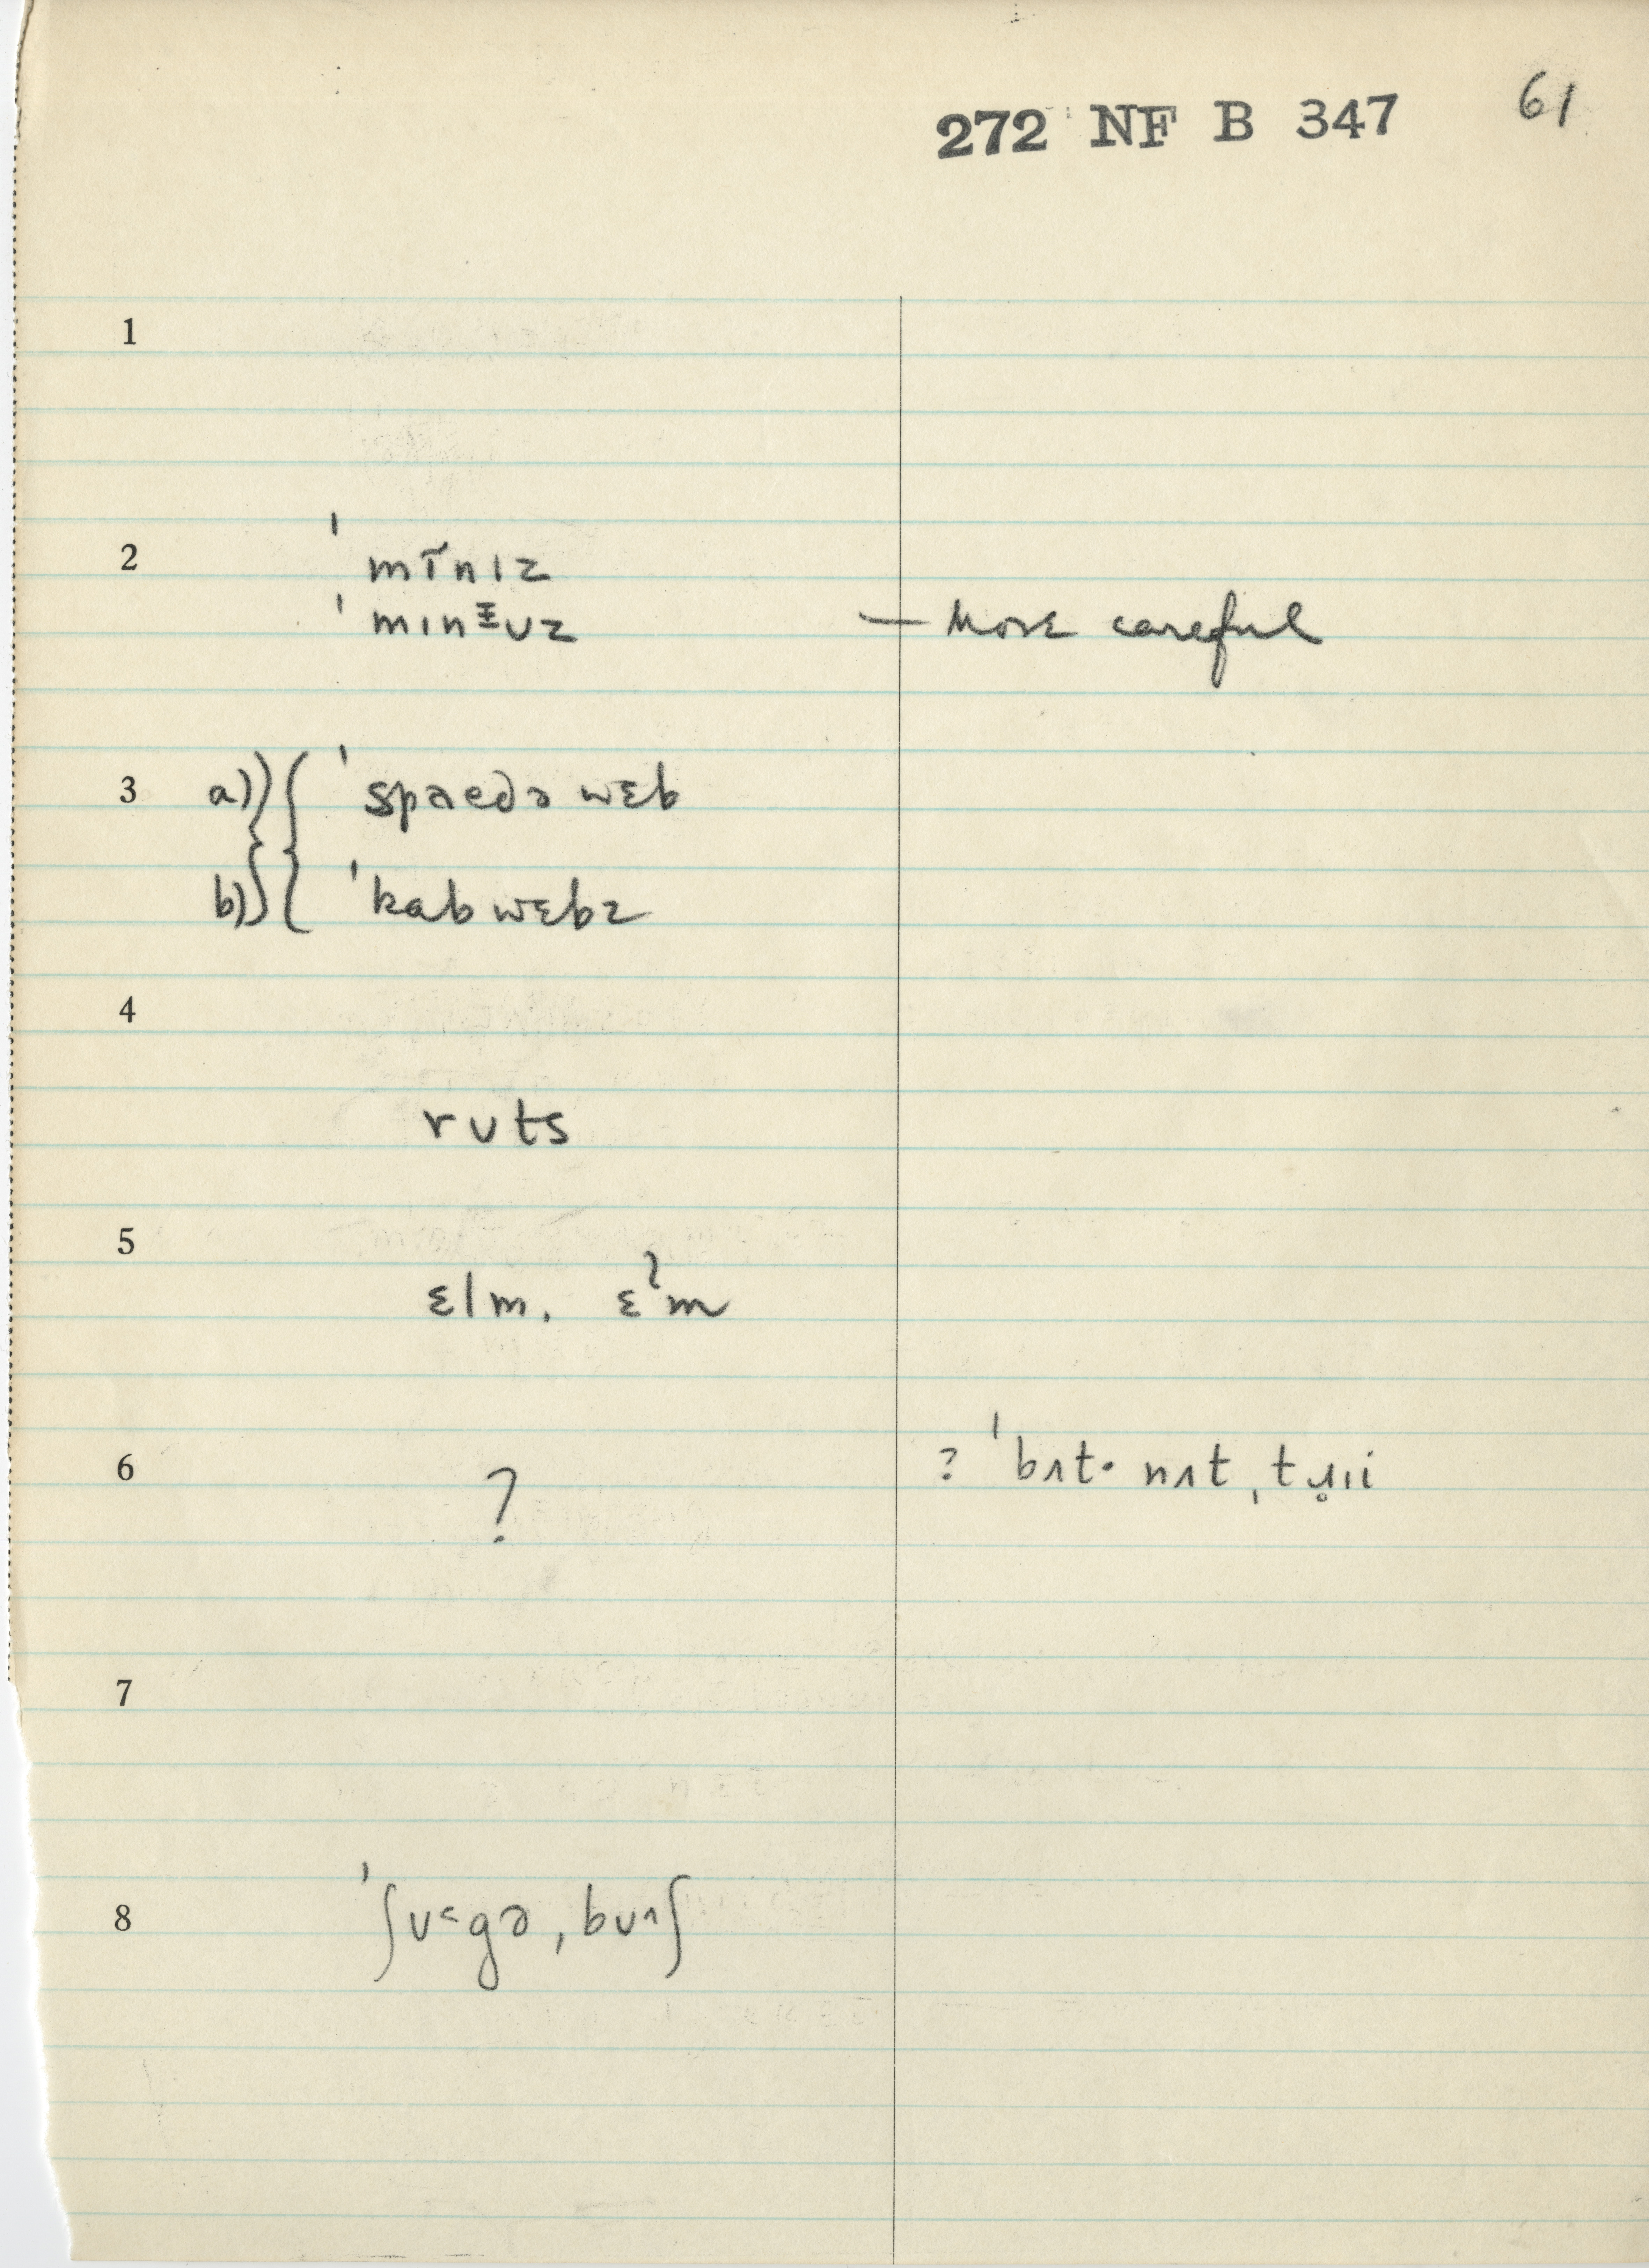 272 NF B 347 61
1
2 ˈmĩnɪz
ˈmɪnᵻʊz — More careful
3 a) ˈspaedə wɛb
b) ˈkab wɛbz
4
rʊts
5
ɛlm. ɛˀm
6 ? ? ˈbʌt· nʌt ˌtɹ̥ɪi
7
8 ˈʃʊ˂gə ˌbʊ˄ʃ